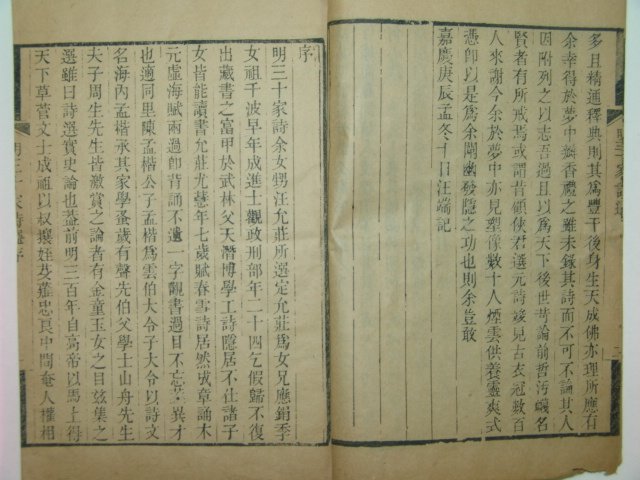 多且精通釋典則其爲豐干後身生天成佛亦理所應有
余幸得於夢中瓣香禮之雖未錄其詩而不可不論其人
因附列之以志吾過且以爲天下後世苛論前哲污衊名
賢者有所戒焉或謂昔顧俠君選元詩竣見古衣冠數百
人來謝今余於夢中亦見塑像數十人煙雲供養靈爽式
憑卽以是爲余闡幽發隱之功也則余豈敢
嘉慶庚辰孟冬十日汪端記
序
明三十家詩余女甥汪允莊所選定允莊爲女兄應鋗季
女祖千波早年成進士觀政刑部年二十四乞假歸不復
出藏書之富甲於武林父天潛博學工詩隱居不仕諸子
女皆能讀書允莊尤慧年七歲賦春雪詩居然成章誦木
元虛海賦兩過卽背誦不遺一字觀書過目不忘眞異才
也適同里陳孟楷公子孟楷爲雲伯大令子大令以詩文
名海內孟楷承其家學蚤歲有聲先伯父學士山舟先生
夫子周生先生皆激賞之論者有金童玉女之目玆集之
選雖曰詩選實史論也蓋前明三百年自高帝以馬上得
天下草菅文士成祖以叔攘姪芟薙忠良中間奄人權相
明三十家詩選序